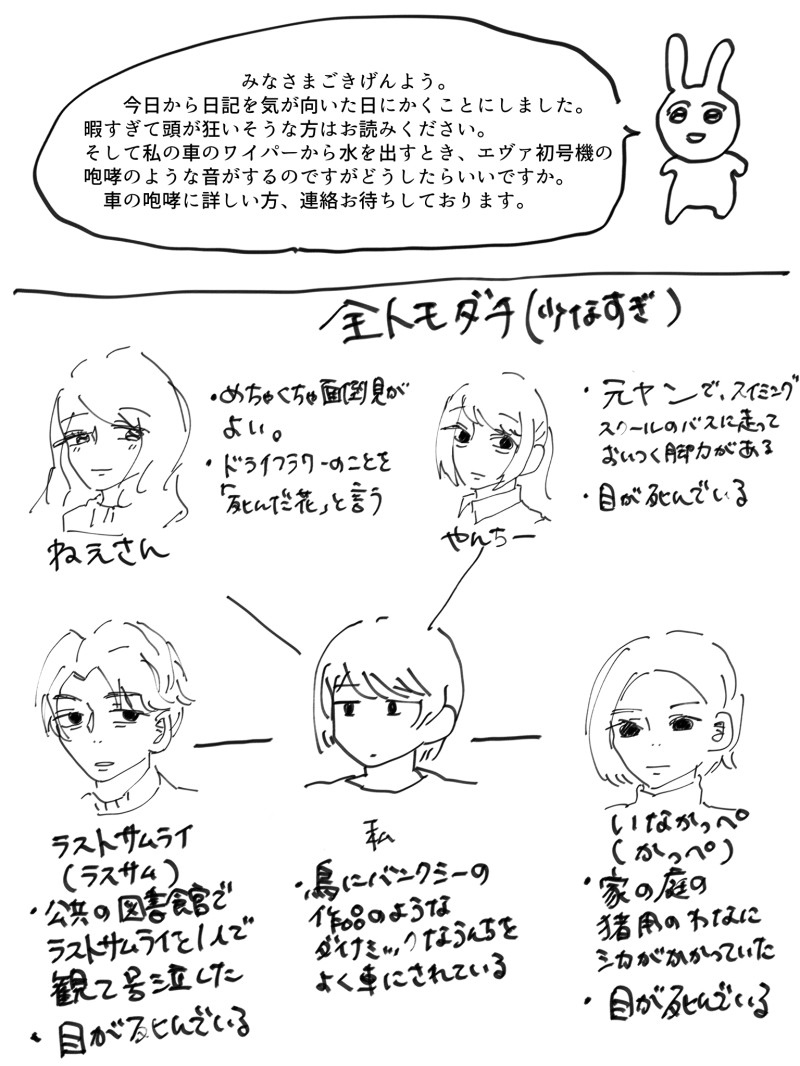 みなさまごきげんよう。
今日から日記を気が向いた日にかくことにしました。
暇すぎて頭が狂いそうな方はお読みください。
そして私の車のワイパーから水を出すとき、エヴァ初号機の
咆哮のような音がするのですがどうしたらいいですか。
車の咆哮に詳しい方、連絡お待ちしております。
全トモダチ(少なすぎ)
・めちゃくちゃ面倒見が
よい。
・ドライフラワーのことを
「死んだ花」と言う
ねえさん
・元ヤンで、スイミング
スクールのバスに走って
おいつく脚力がある
・目が死んでいる
やんちー
ラストサムライ
(ラスサム)
・公共の図書館で
ラストサムライを1人で
観て号泣した
・目が死んでいる
私
・鳥にバンクシーの
作品のような
ダイナミックなうんちを
よく車にされている
いなかっぺ
(かっぺ)
・家の庭の
猪用のわなに
シカがかかっていた
・目が死んでいる